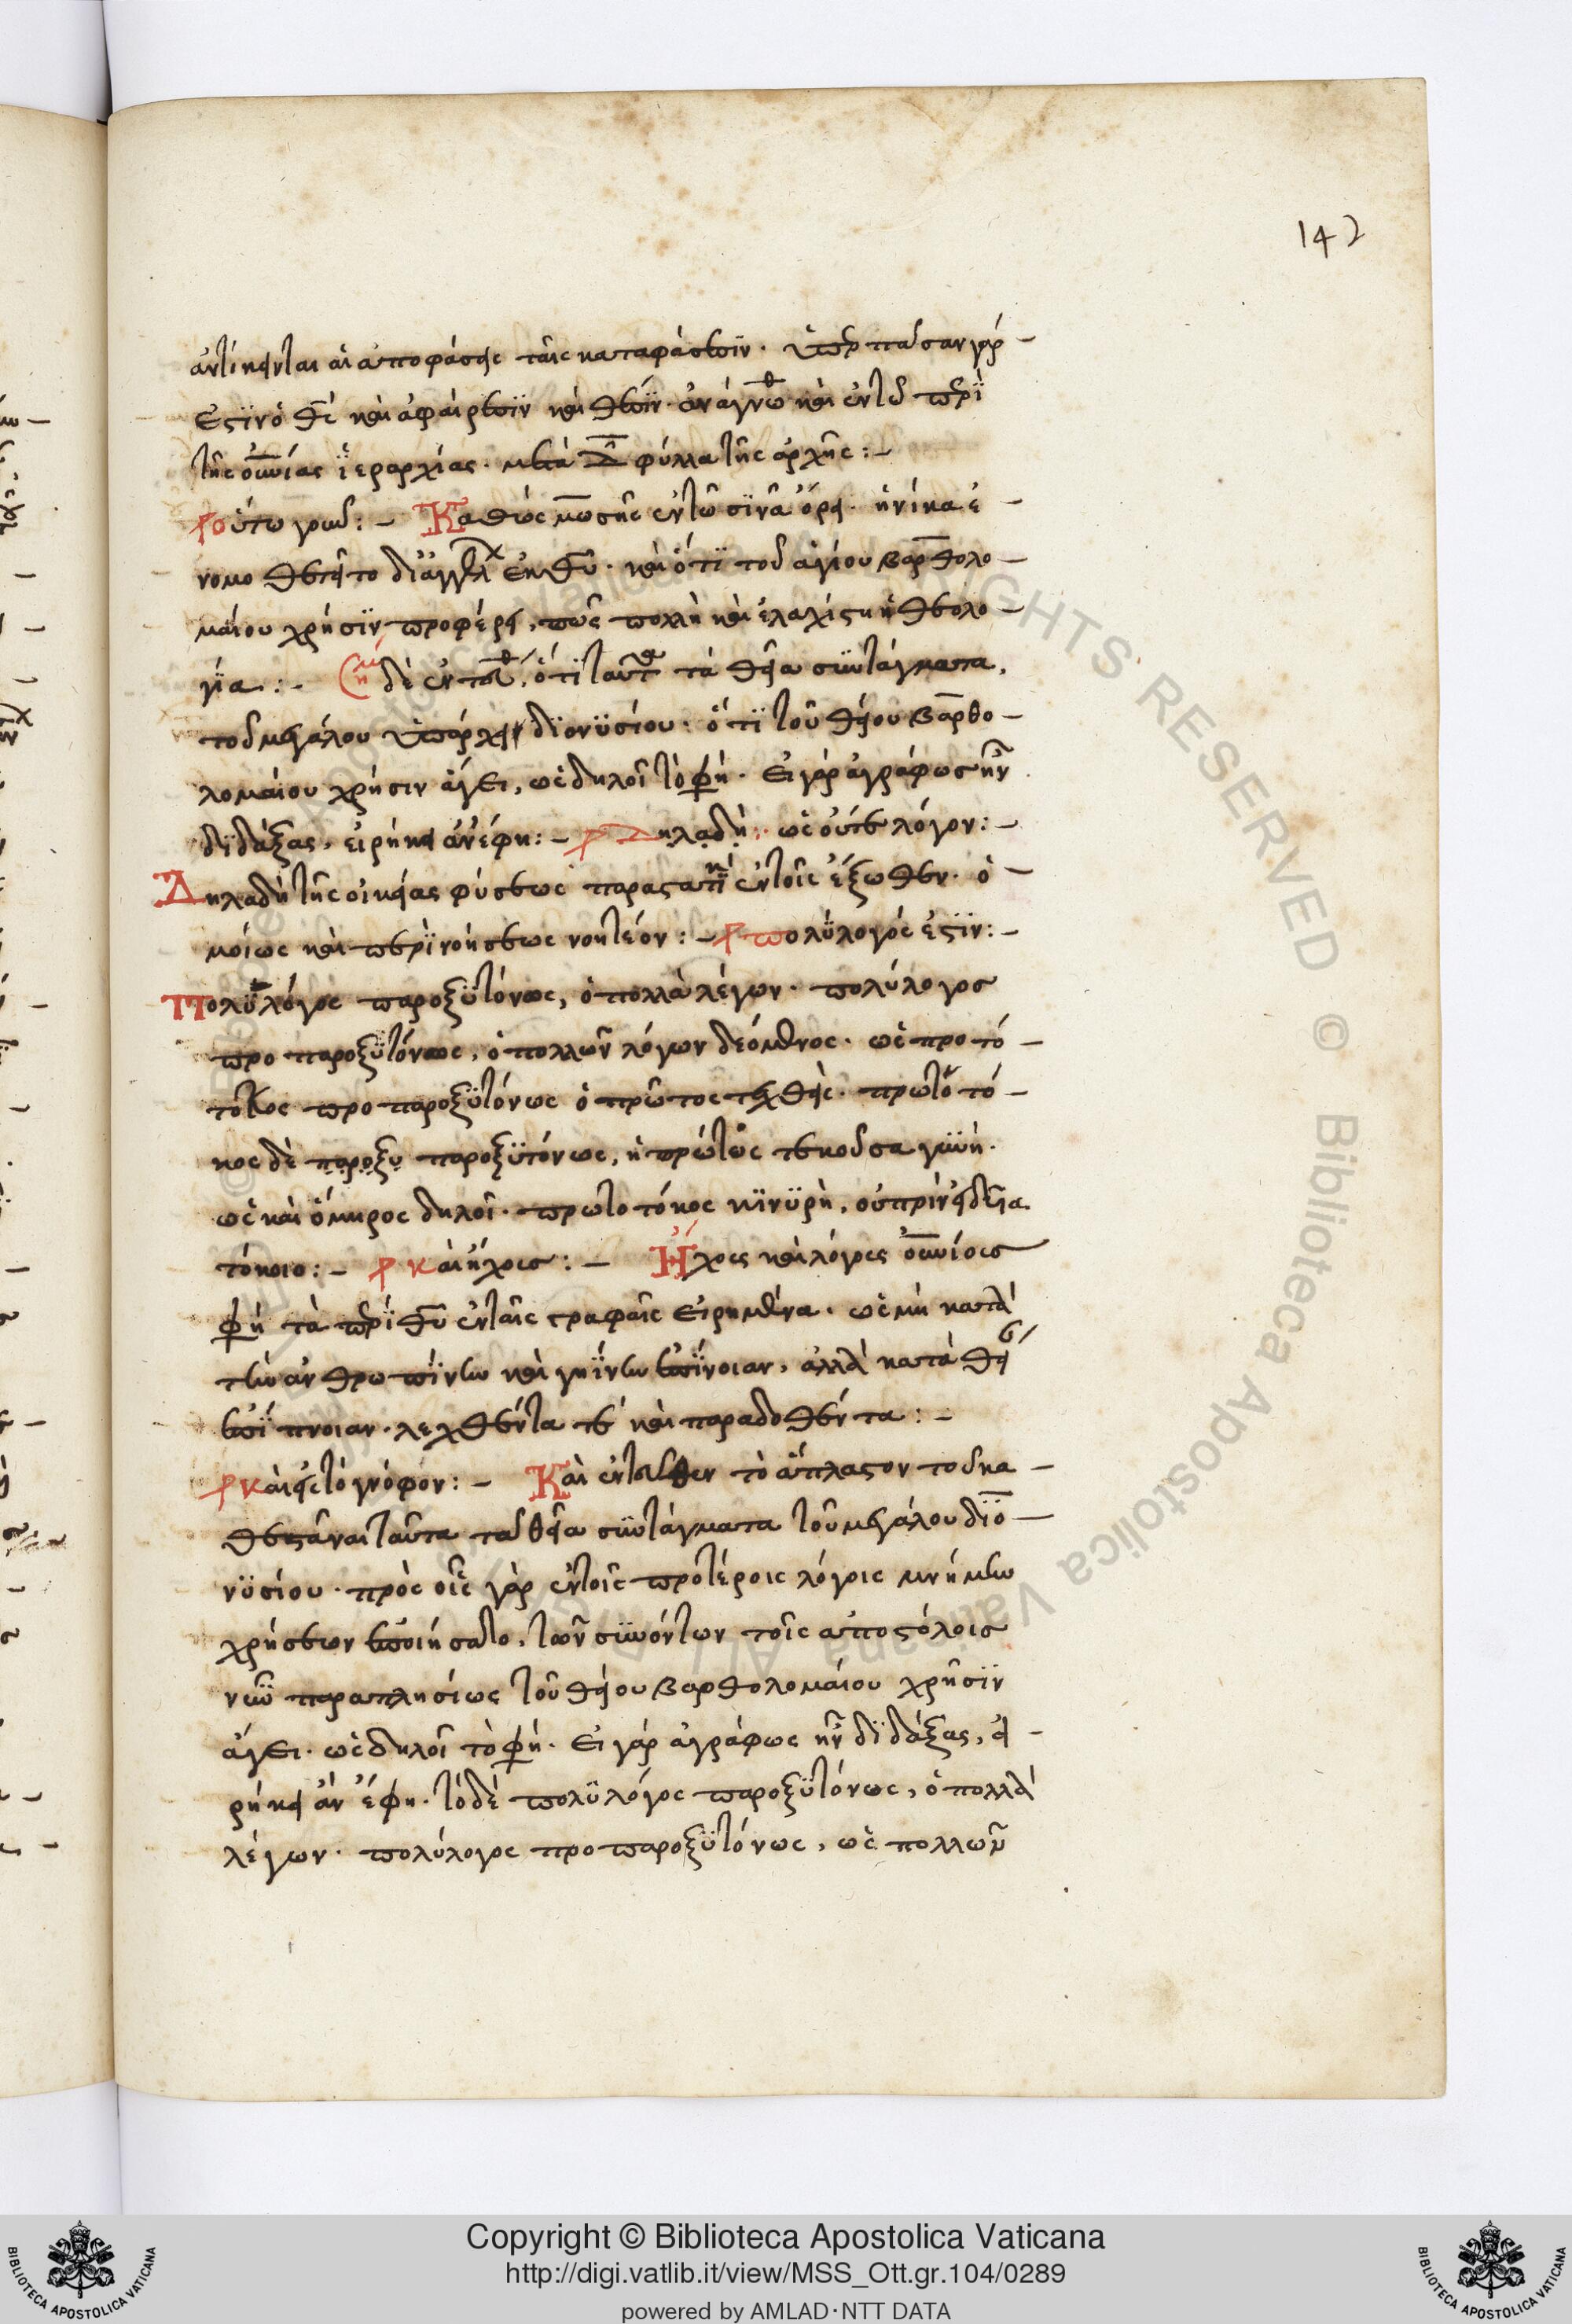 142
ἀντίκεινται αἱ ἀποφάσεις ταῖς καταφάσεσιν. ὑπὲρ πᾶσαν γάρ
ἐστιν ὁ θς καὶ ἀφαίρεσιν καὶ θέσιν. ἀνάγνωθ καὶ ἐν τῶ περὶ
τῆς οὐνίας ἱεραρχίας. μετὰ Δ φύλλα τῆς ἀρχῆς:-
οὕτω γοῦν:- Καθὼς μωσῆς ἐν τῶ σινᾶ ὄρει. ἡνίκα ἐ
νομοθετεῖτο δι ἀγγελ ἐκ θυ. καὶ ὅτι τοῦ ἁγίου βαρθολο
μαίου χρῆσιν προφέρει, πῶς πολλὴ καὶ ἐλαχίστη ἡ θεολο
γία:- δὲ ὅτι ταῦτα τὰ θεῖα συντάγματα,
τοῦ μεγάλου ὑπάρχει διονυσίου. ὅτι τοῦ θείου βαρθο
λομαίου χρῆσιν ἄγει, ὡς δηλοῖ τὸ φη. εἰ γὰρ ἀγράφως ἦν
διδάξας, εἰρήκει ἂν ἔφη:- Δηλαδὴ. ὡς οὔτε λόγον:-
Δηλαδὴ τῆς οἰκείας φύσεως παραστατικὴ ἐν τοῖς ἔξωθεν. ὁ
μοίως καὶ περὶ νοήσεως νοητέον:- πολύλογός ἐστιν:-
Πολυλόγος παροξυτόνως, ὁ πολλὰ λέγων. πολύλογος
προπαροξυτόνως, ὁ πολλῶν λόγων δεόμενος. ὡς προτό
τοκος προπαροξυτόνως ὁ πρῶτος τεχθεὶς. πρωτοτό
κος δὲ παροξυ παροξυτόνως, ἡ πρώτως τεκοῦσα γυνὴ.
ὡς καὶ ὅμηρος δηλοῖ. πρωτοτόκος κινυρὴ, οὐ πρὶν εἰδυῖα
τόκοιο:- καὶ ἤχους:- Ἤχους καὶ λόγους οὐνίους
φη τὰ περὶ θυ ἐν ταῖς γραφαῖς εἰρημένα. ὡς μὴ κατὰ
τὴν ἀνθρωπίνην καὶ γηίνην ἐπίνοιαν, ἀλλὰ κατὰ θεί
ἐπίπνοιαν. λεχθέντα τε καὶ παραδοθέντα:-
καὶ εἰς τὸ γνόφον:- Καὶ ἐντεῦθεν τὸ ἄπλαστον τοῦ κα
ταῦτα τὰ θεῖα συντάγματα τοῦ μεγάλου διο
νυσίου. πρὸς οἷς γὰρ ἐν τοῖς προτέροις λόγοις μνήμην
χρήσεων ἐποιήσατο, τῶν συνόντων τοῖς ἀποστόλοις
νῦν παραπλησίως τοῦ θείου βαρθολομαίου χρῆσιν
ἄγει. ὡς δηλοῖ τὸ φη. εἰ γὰρ ἀγράφως ἦν διδάξας, εἰ
ρήκει ἂν ἔφη. τὸ δὲ πολυλόγος παροξυτόνως, ὁ πολλὰ
λέγων. πολύλογος προπαροξυτόνως, ὡς πολλῶν
Copyright © Biblioteca Apostolica Vaticana
http://digi.vatlib.it/view/MSS_Ott.gr.104/0289
powered by AMLAD·NTT DATA